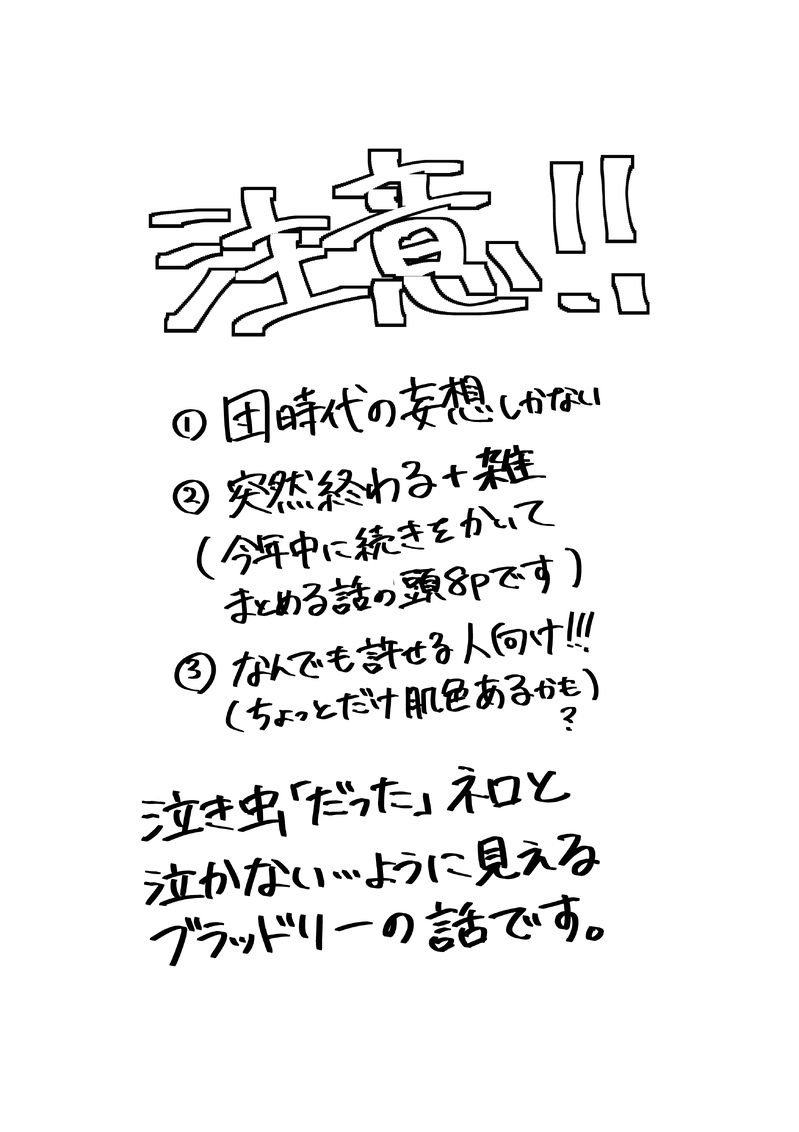 注意!!
① 団時代の妄想しかない
② 突然終わる+雑
(今年中に続きをかいて
まとめる話の頭8pです)
③ なんでも許せる人向け!!!
(ちょっとだけ肌色あるかも?)
泣き虫「だった」ネロと
泣かない…ように見える
ブラッドリーの話です。